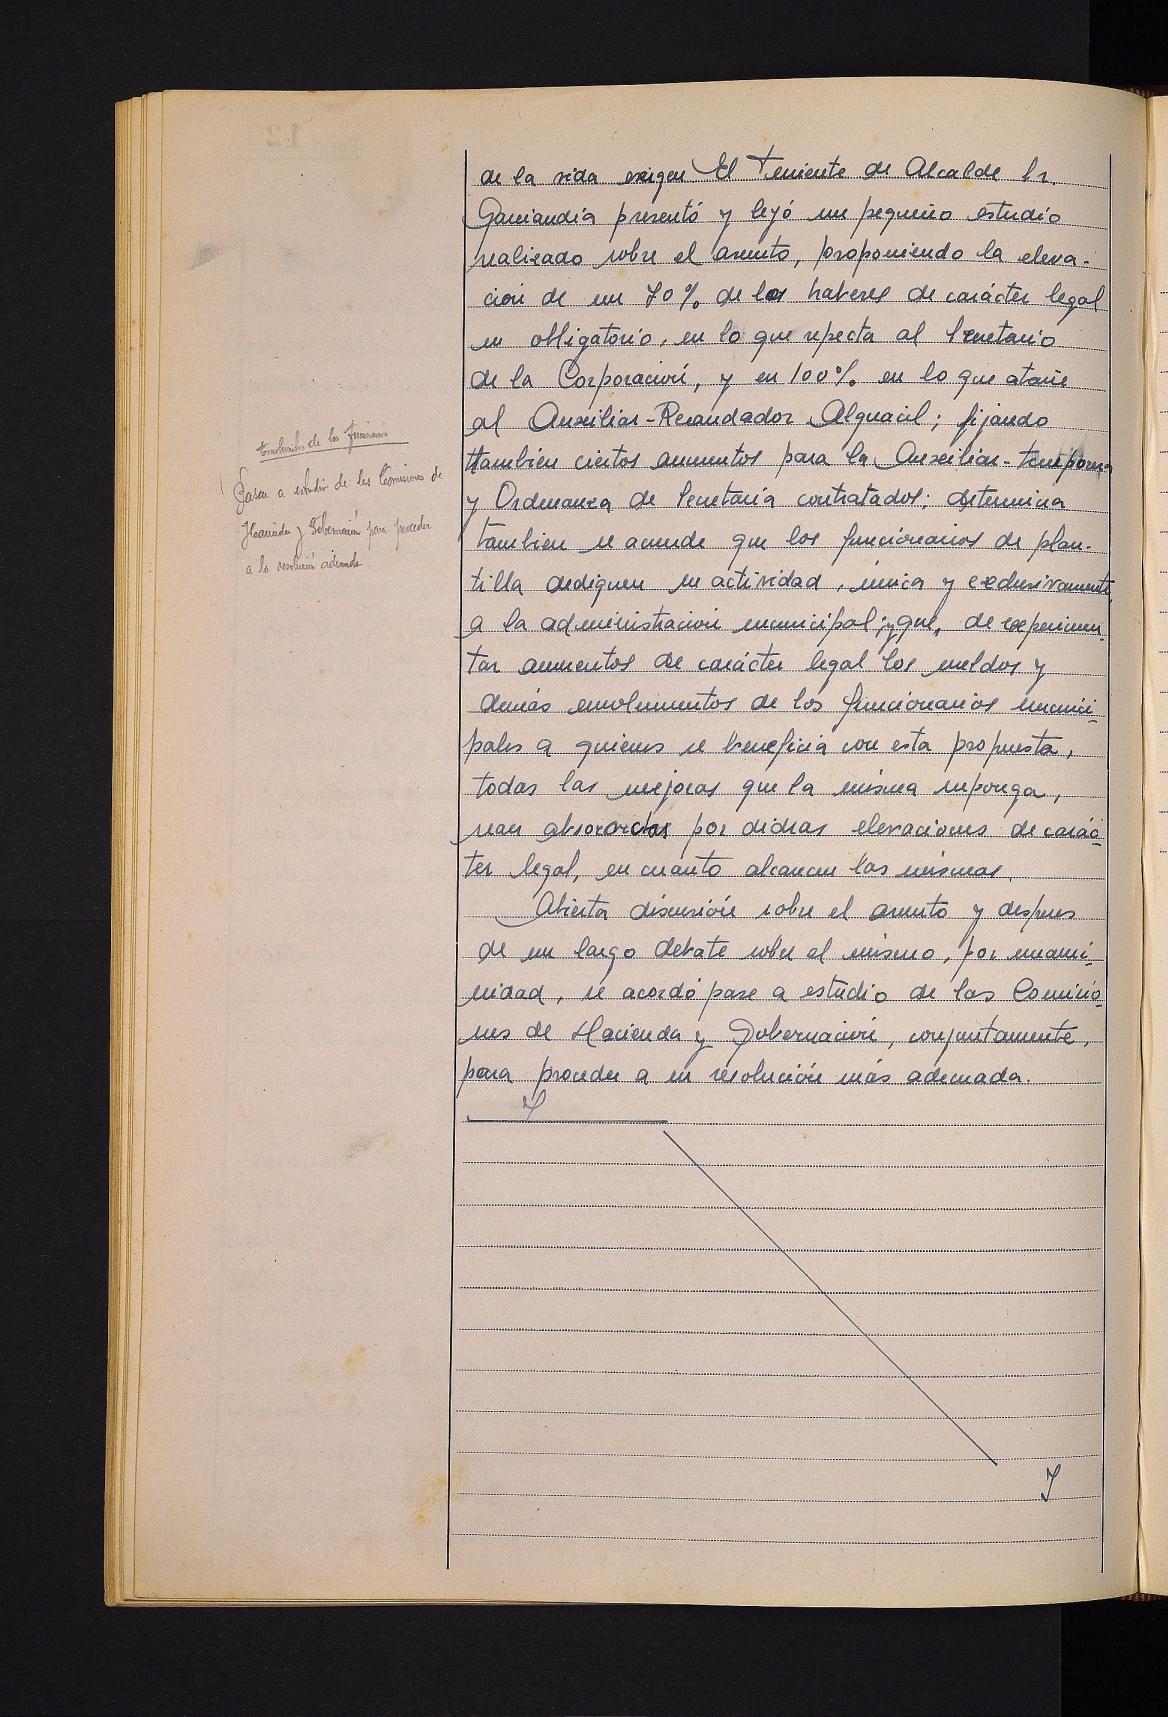 de la vida exigen. El Teniente de Alcalde Sr.
Gamiandia presentó y lejó un pequeño estudio
realizado sobre el asunto, proponiendo la eleva-
ción de un 70% de los haberes de carácter legal
u obligatorio, en lo que repecta al Secretario
de la Corporación, y en 100% en lo que atañe
al Auxiliar-Recaudador Alguacil; fijando
ttambien ciertos aumentos para la Auxiliar-temporera
y Ordenanza de Secretaría contratados; determina
tambien se acuerde que los funcionarios de plan-
tilla dediquen su actividad, única y exclusivamente,
a la administración municipal; y que, de experimen-
tar aumentos de carácter legal los sueldos y
demás emolumentos de los funcionarios munici-
pales a quienes se beneficia con esta propuesta,
todas las mejoras que la misma suponga,
sean absorbidas por dichas elevaciones de carác-
ter legal, en cuanto alcancen las mismas.
Abierta discusión sobre el asunto y despues
de un largo debate sobre el mismo, por unani-
midad, se acordó pase a estudio de las Comisio-
nes de Hacienda y Gobernación, conjuntamente,
para proceder a su resolución más adecuada.
Emolumentos de los funcionarios
Pasar a estudio de las Comisiones de
Hacienda y Gobernación para proceder
a la resolución adecuada